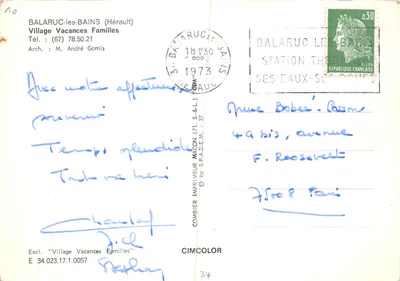 10
BALARUC-les-BAINS (Hérault)
Village Vacances Familles
Tél. : (67) 78.50.21
Arch. : M. André Gomis
Avec notre affectueux
souvenir
Temps splendide
Tout va bien
Chantal
J. Cl
Excl. "Village Vacances Familles"
E 34.023.17.1.0057
COMBIER IMPRIMEUR MACON (71. S.-&-L.)
© by S.P.A.D.E.M. - 37
CIMCOLOR
34
BALARUC LES BAINS
18H30
1973
HERAULT
BALARUC LES BAINS
STATION THERMALE
SES EAUX-SES BOUES
0,30
REPUBLIQUE FRANÇAISE
Mme
49 bis, avenue
F. Roosevelt
75008 Paris